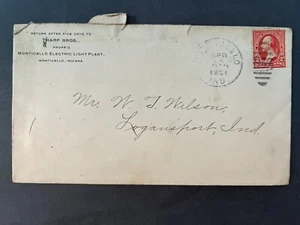 RETURN AFTER FIVE DAYS TO
THARP BROS.,
PROPR'S
MONTICELLO ELECTRIC LIGHT PLANT,
MONTICELLO, INDIANA.
APR
IND.
Mr. W. T. Wilson,
Logansport, Ind.